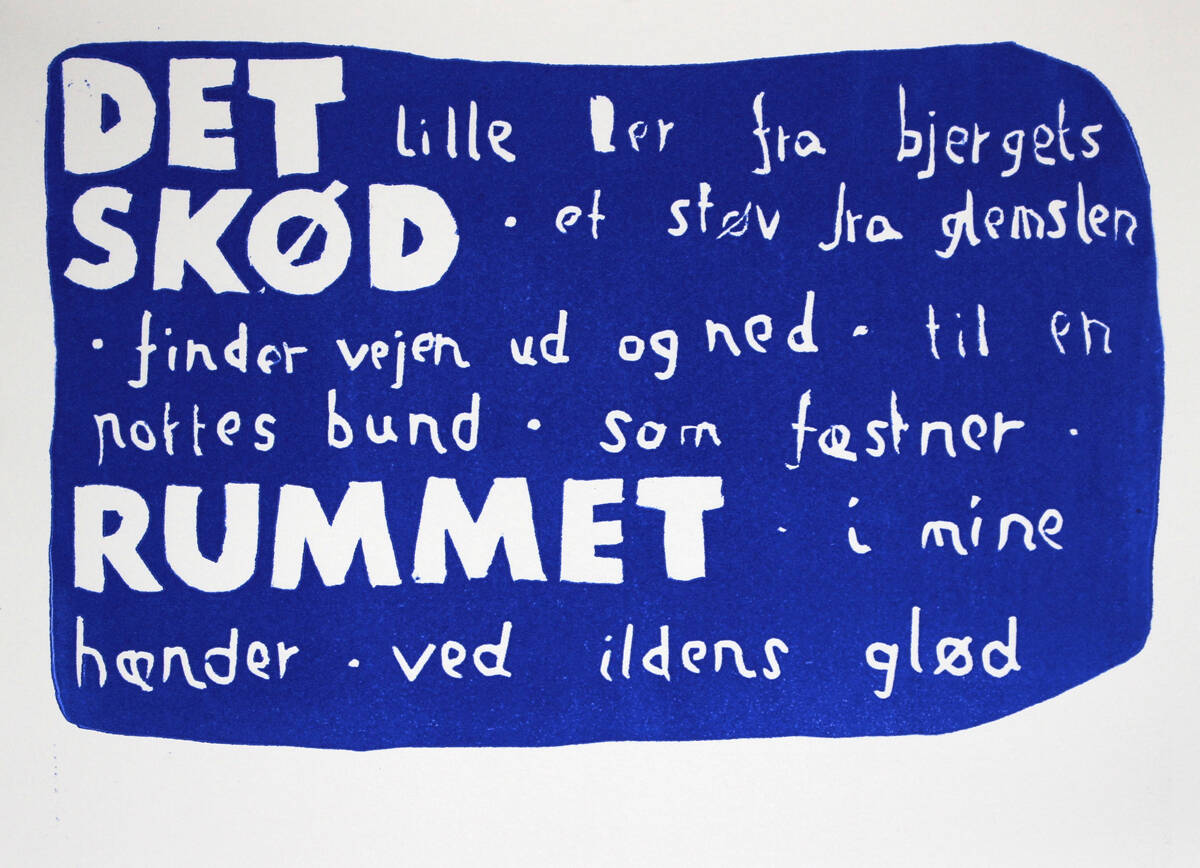 DET lille ler fra bjergets
SKØD · et støv fra glemslen
· finder vejen ud og ned · til en
pottes bund · som fæstner ·
RUMMET · i mine
hænder · ved ildens glød